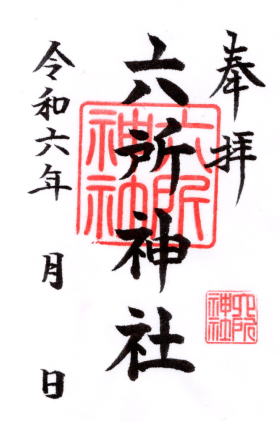 奉拝
六所神社
六所
神社
六所
神社
令和六年 月 日